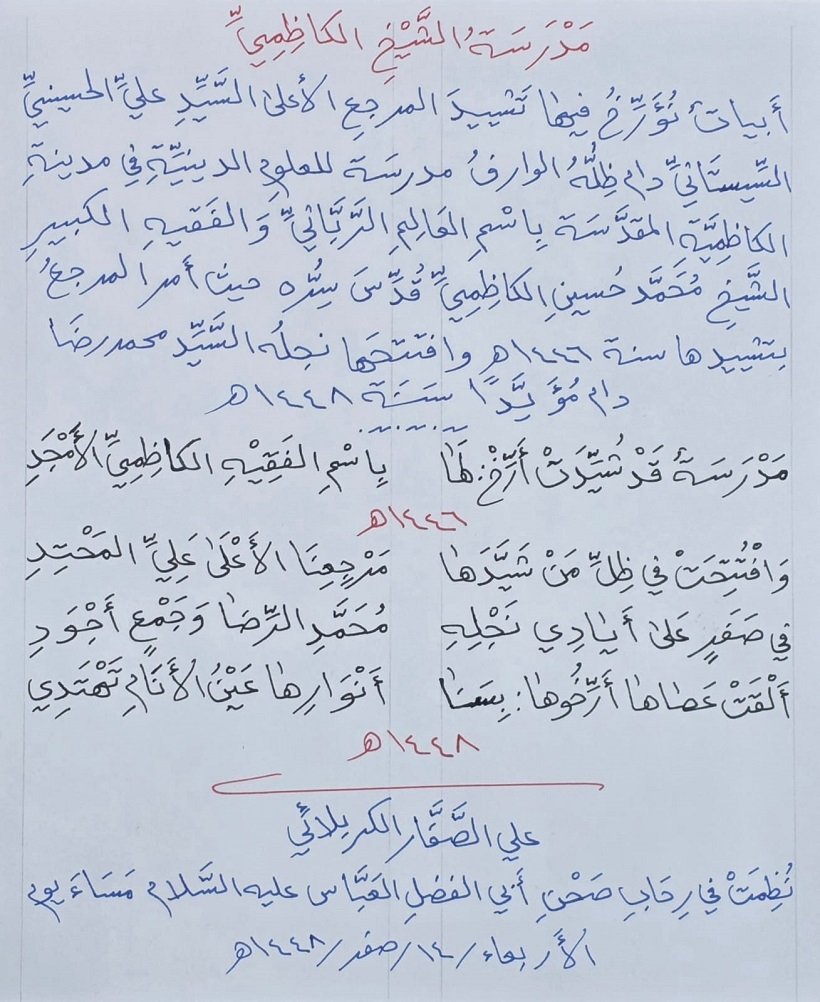 مَدْرَسَةُ الشَّيْخِ الكَاظِمِيِّ
أَبياتٌ نُؤَرِّخُ فيها تَشييدَ المرجعِ الأعلىٰ السَّيِّدِ عليٍّ الحسينيِّ
السِّيستَانيِّ دام ظِلُّهُ الوارفُ مدرسَة للعلوم الدينيَّةِ في مدينةِ
الكاظِميَّةِ المقدَّسَة بِاسْمِ العَالِمِ الرَّبَّانِيِّ وَالفَقيهِ الكبيرِ
الشَّيخِ مُحَمَّد حُسينِ الكاظِمِيِّ قُدِّسَ سِرُّه حيث أمر المرجعُ
بتشييدها سنة ١٤٤٦هـ وافتتحَها نجلُه السَّيِّد محمد رضَا
دام مُؤَيَّدًا سَنَة ١٤٤٨هـ
مَدْرَسَةٌ قَدْ شُيِّدَتْ أَرِّخْ: لَهَا بِاسْمِ الفَقِيْهِ الكاظِمِيِّ الأَمْجَدِ
١٤٤٦هـ
وَافْتُتِحَتْ في ظِلِّ مَنْ شَيَّدَهَا مَرْجِعِنَا الأَعْلَىٰ عَلِيِّ المَحْتِدِ
في صَفَرٍ عَلىٰ أَيَادِي نَجْلِهِ مُحَمَّدِ الرِّضَا وَجَمْعٍ أَجْوَدِ
أَلْقَتْ عَصَاهَا أَرِّخُوها: بِسَنَا أَنْوَارِهَا عَيْنُ الأَنَامِ تَهْتَدِي
١٤٤٨هـ
علي الصَّفَّار الكربلائي
نُظِمَتْ في رِحَابِ صَحْنِ أَبي الفضلِ العَبَّاسِ عليه السَّلام مَسَاءَ يوم
الأربعاء/١٤/صفر/١٤٤٨هـ